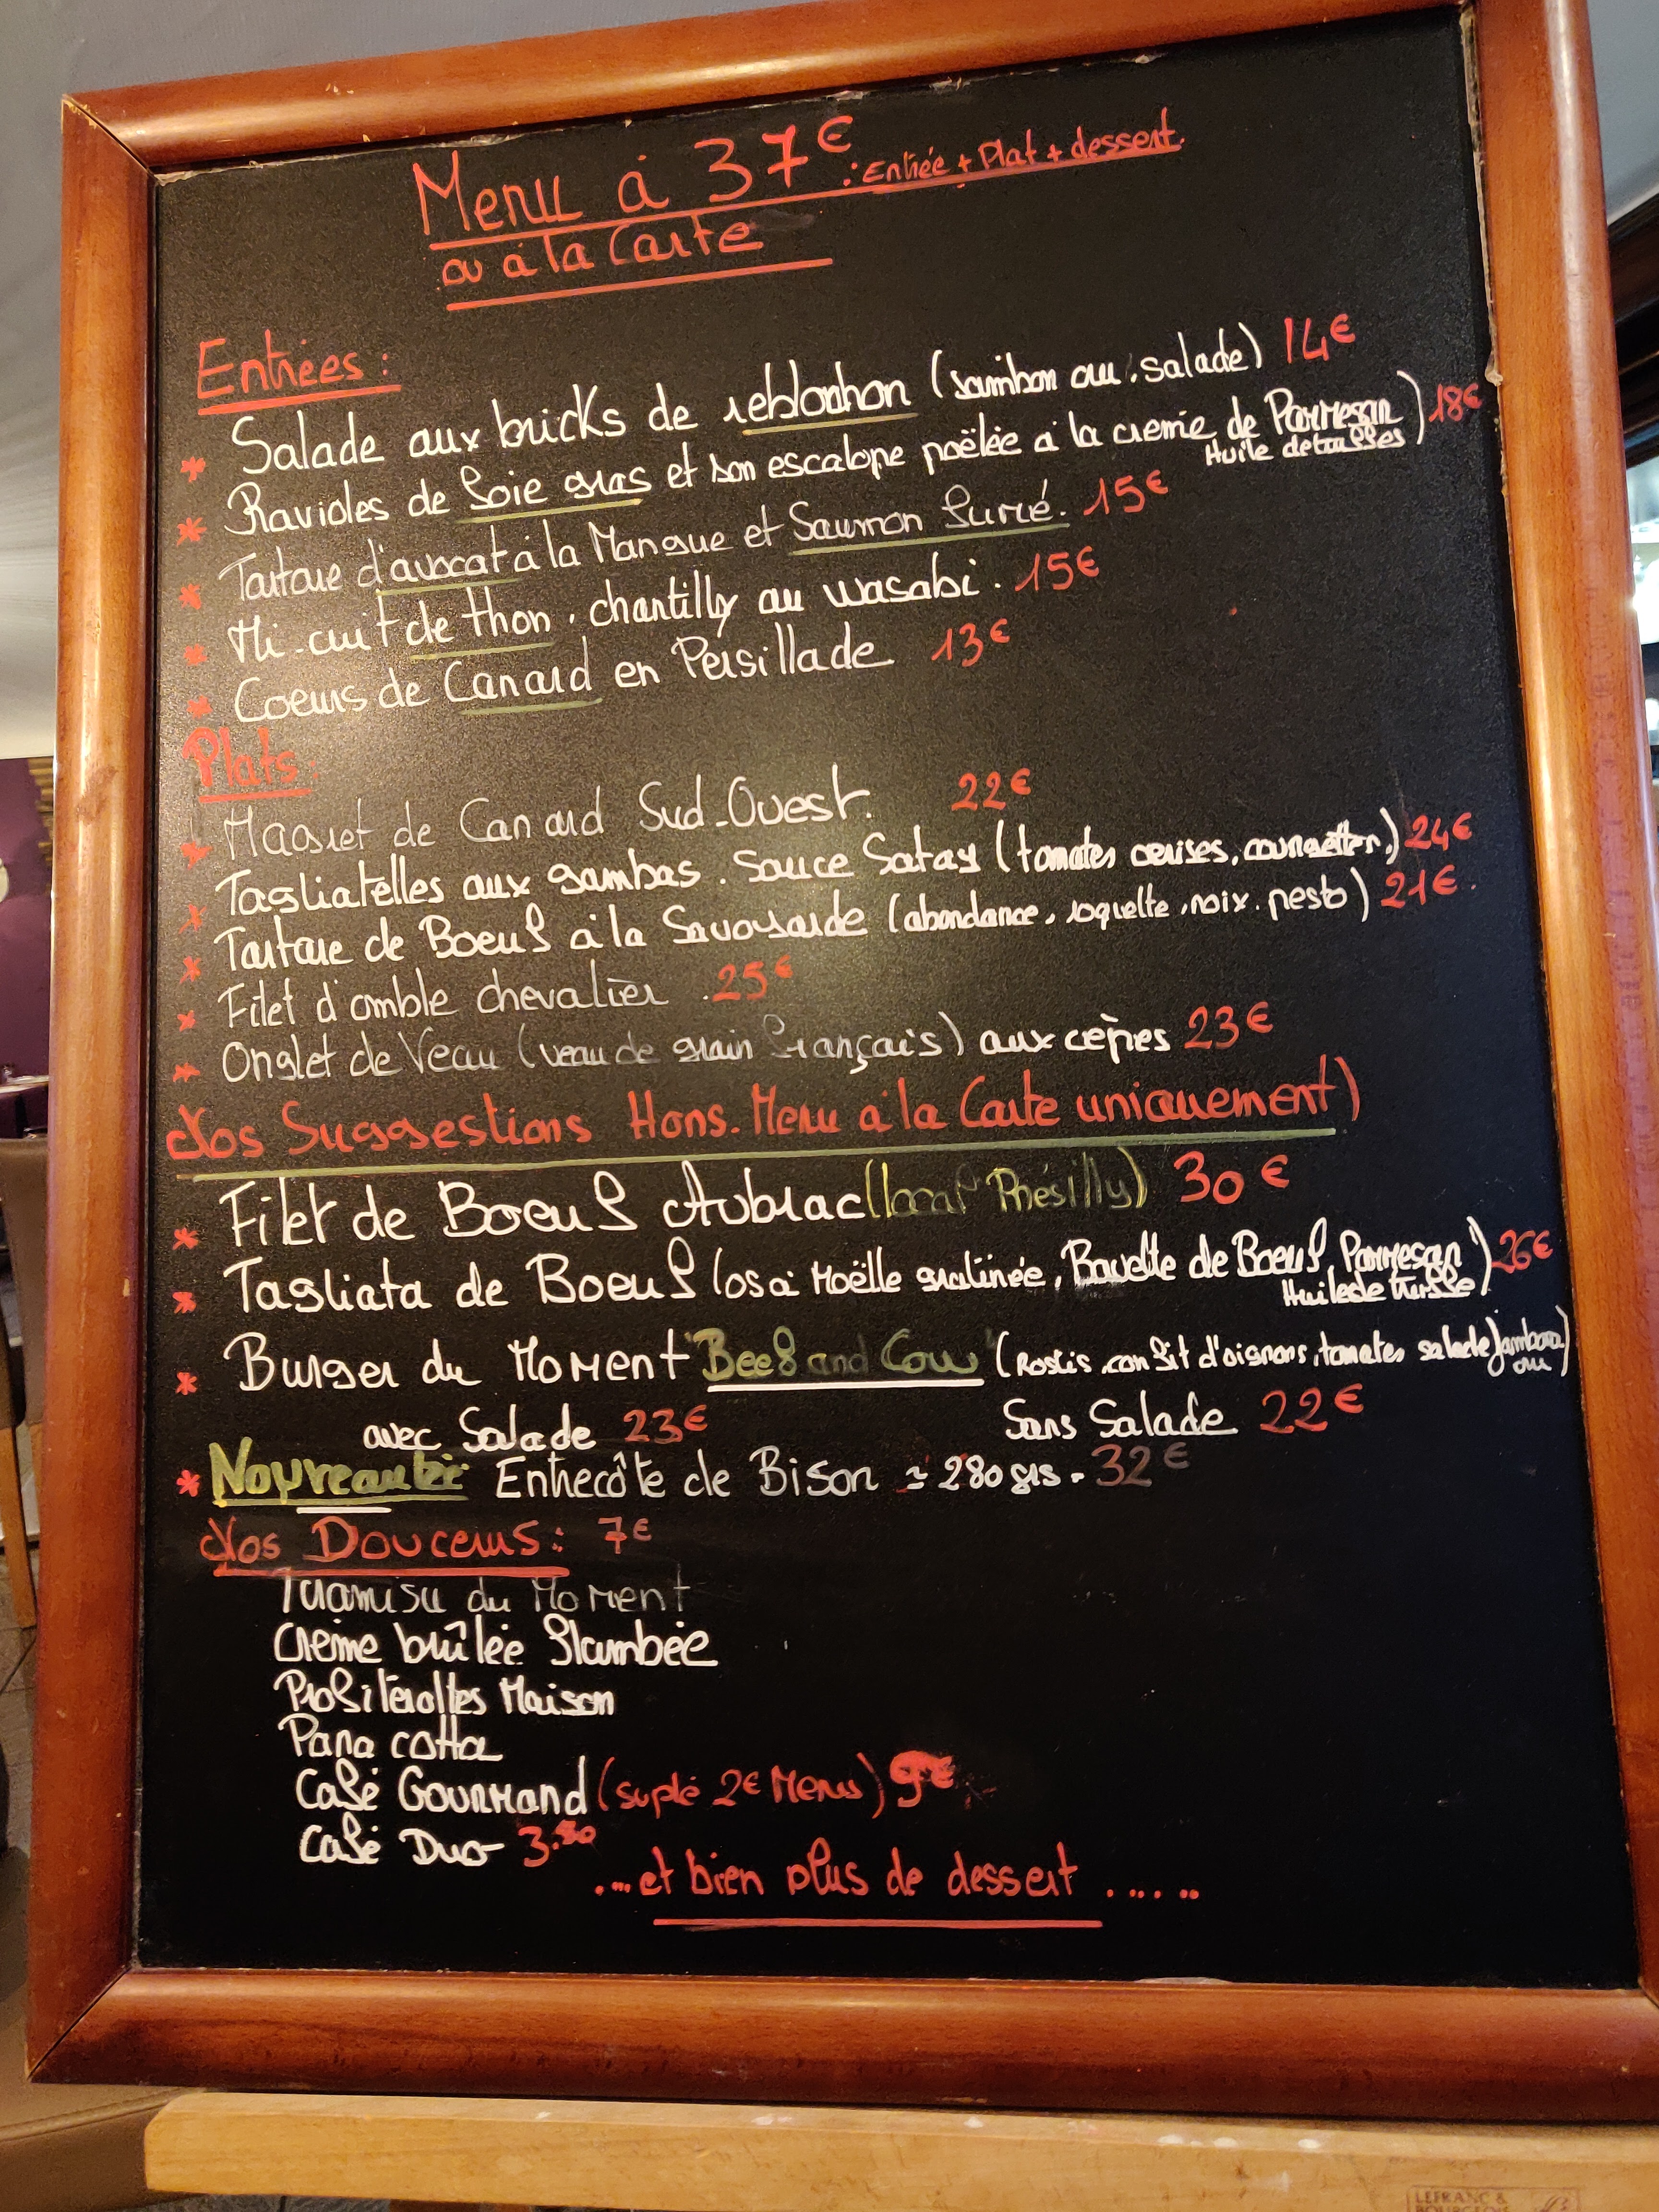 Menu à 37€ : Entrée + Plat + dessert.
ou à la Carte
Entrées :
* Salade aux bricks de reblochon (jambon cru, salade) 14€
* Ravioles de foie gras et son escalope poëlée à la crème de Parmesan) 18€
Huile de truffes
* Tartare d'avocat à la Mangue et Saumon fumé. 15€
* Mi-cuit de thon, chantilly au wasabi. 15€
* Coeurs de Canard en Persillade 13€
Plats :
* Magret de Canard Sud-Ouest. 22€
* Tagliatelles aux gambas. Sauce Satay (tomates cerises, courgettes) 24€
* Tartare de Boeuf à la Savoyarde (abondance, roquette, noix. pesto) 21€.
* Filet d'omble chevalier .25€
* Onglet de Veau (veau de grain français) aux cèpes 23€
Nos Suggestions Hors-Menu à la Carte uniquement)
* Filet de Boeuf Aubrac (local Présilly) 30€
* Tagliata de Boeuf (os à Moëlle gratinée, Bavette de Boeuf, Parmesan) 26€
Huile de truffe)
* Burger du Moment "Beef and Cow" (Rostis, confit d'oignons, tomates salade jambon)
cru
avec Salade 23€ Sans Salade 22€
* Nouveauté Entrecôte de Bison ≃ 280 grs - 32€
Nos Douceurs : 7€
Tiramisu du Moment
Crème brûlée flambée
Profiterolles Maison
Pana cotta
Café Gourmand (suplé 2€ Menu) 9€
Café Duo 3.50
....et bien plus de dessert ......
LEFRANC &
BOURGEOIS